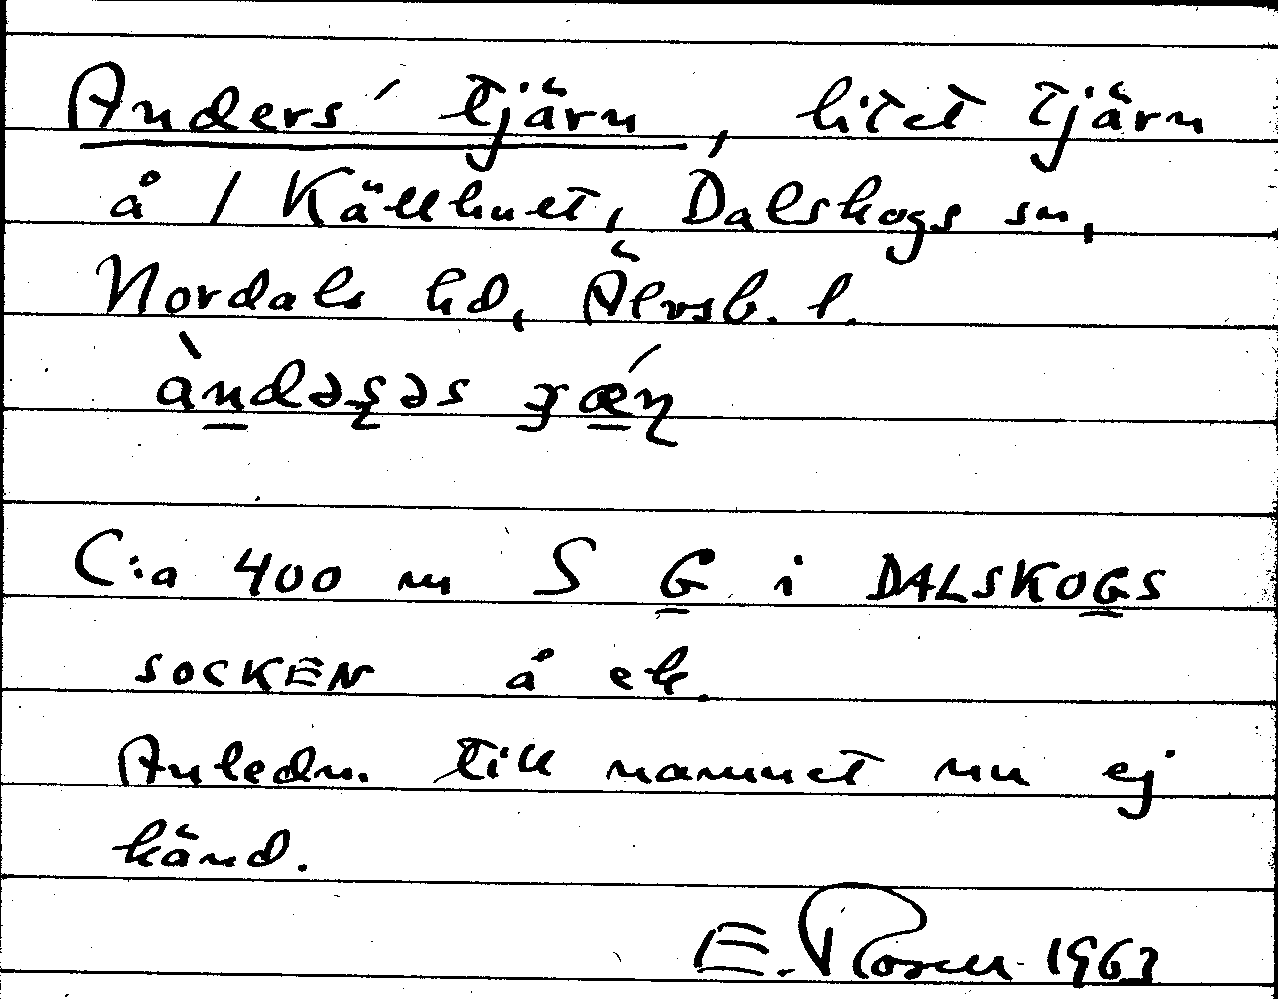 Anders' tjärn, litet tjärn
å 1 Källhult, Dalskogs sn,
Nordals hd, Älvsb. l.
C:a 400 m S G i DALSKOGS
SOCKEN å ek.
Anledn. till namnet nu ej
känd.
E. Rosen 1963